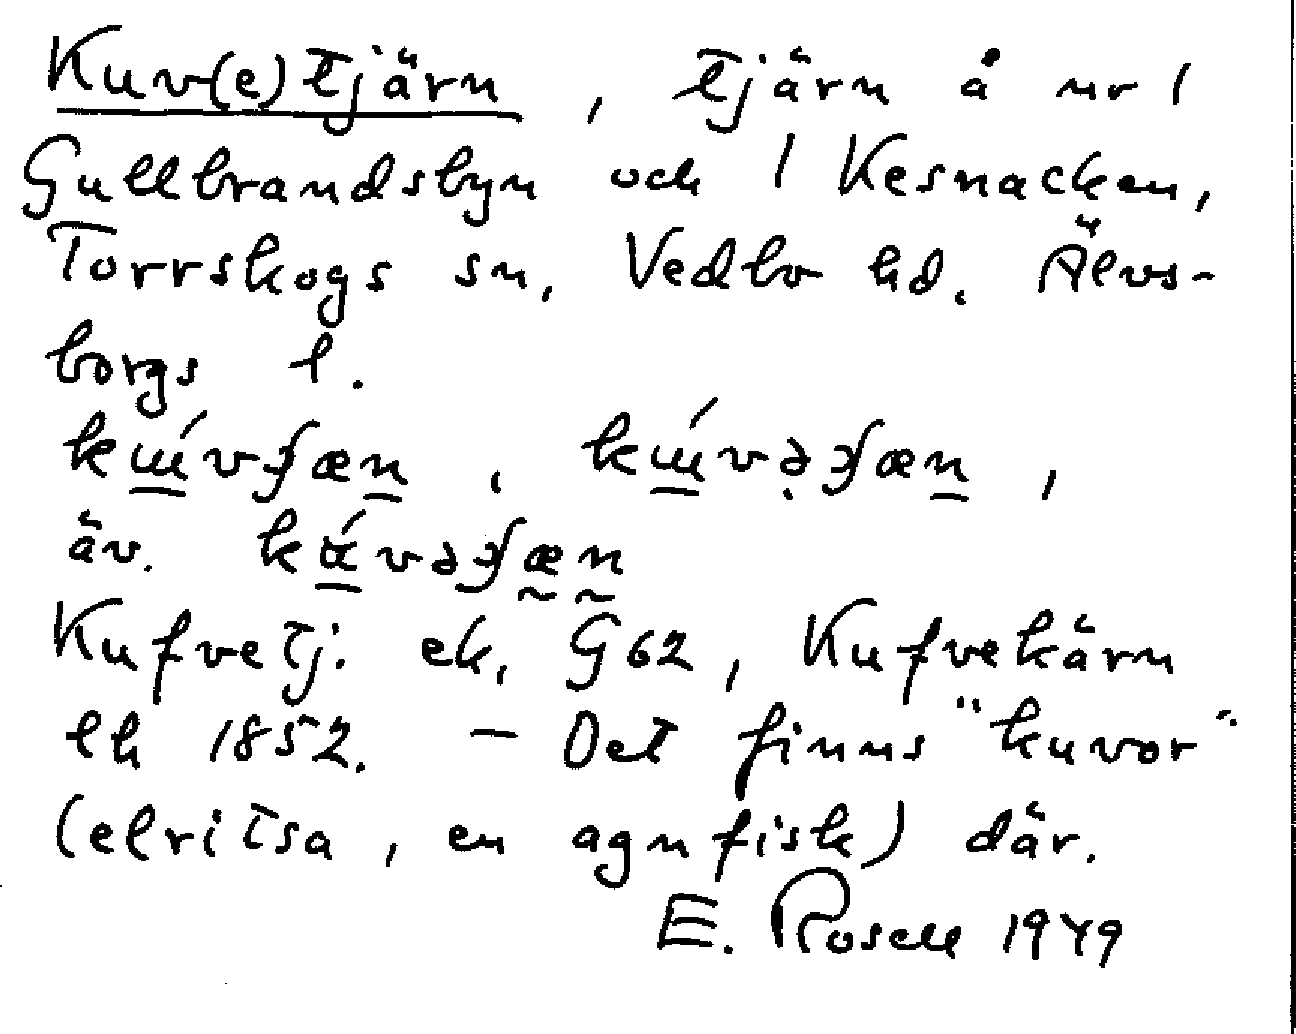 Kuv(e)tjärn, tjärn å nr 1
Gullbrandsbyn och 1 Kesnacken,
Torrskogs sn, Vedbo hd. Älvs-
borgs l.
äv.
Kufvetj. ek. G 62, Kufvekärn
lh 1852. – Det finns "kuvor"
(elritsa, en agnfisk) där.
E. Rosell 1949